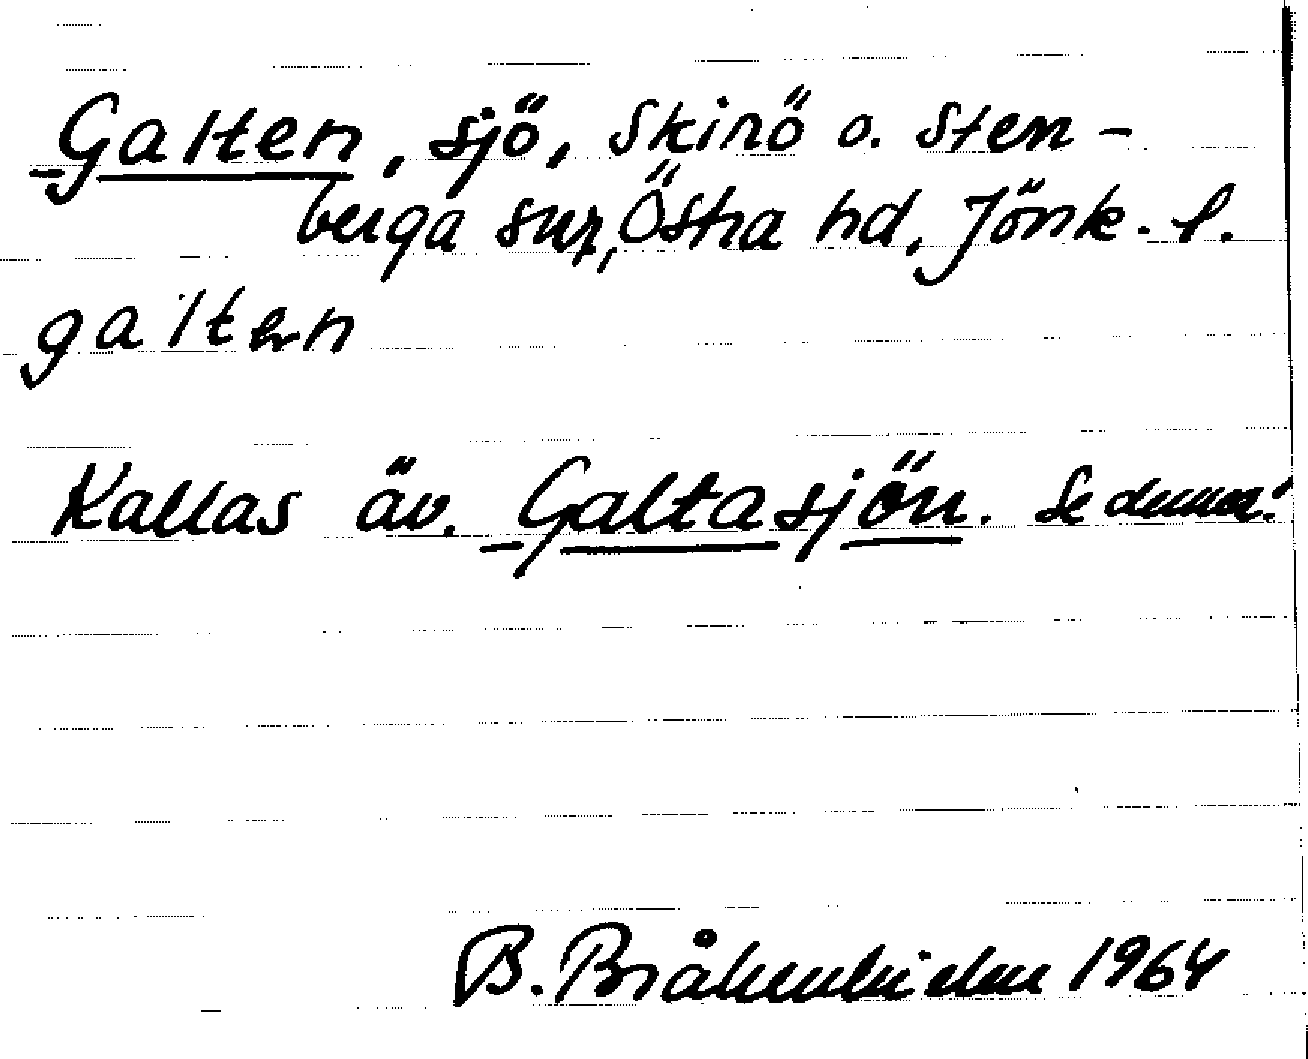 Galten, sjö, Skirö o. Sten-
berga snr, Östra hd, Jönk. l.
Kallas äv. Galtasjön. Se denna!
B. 1964